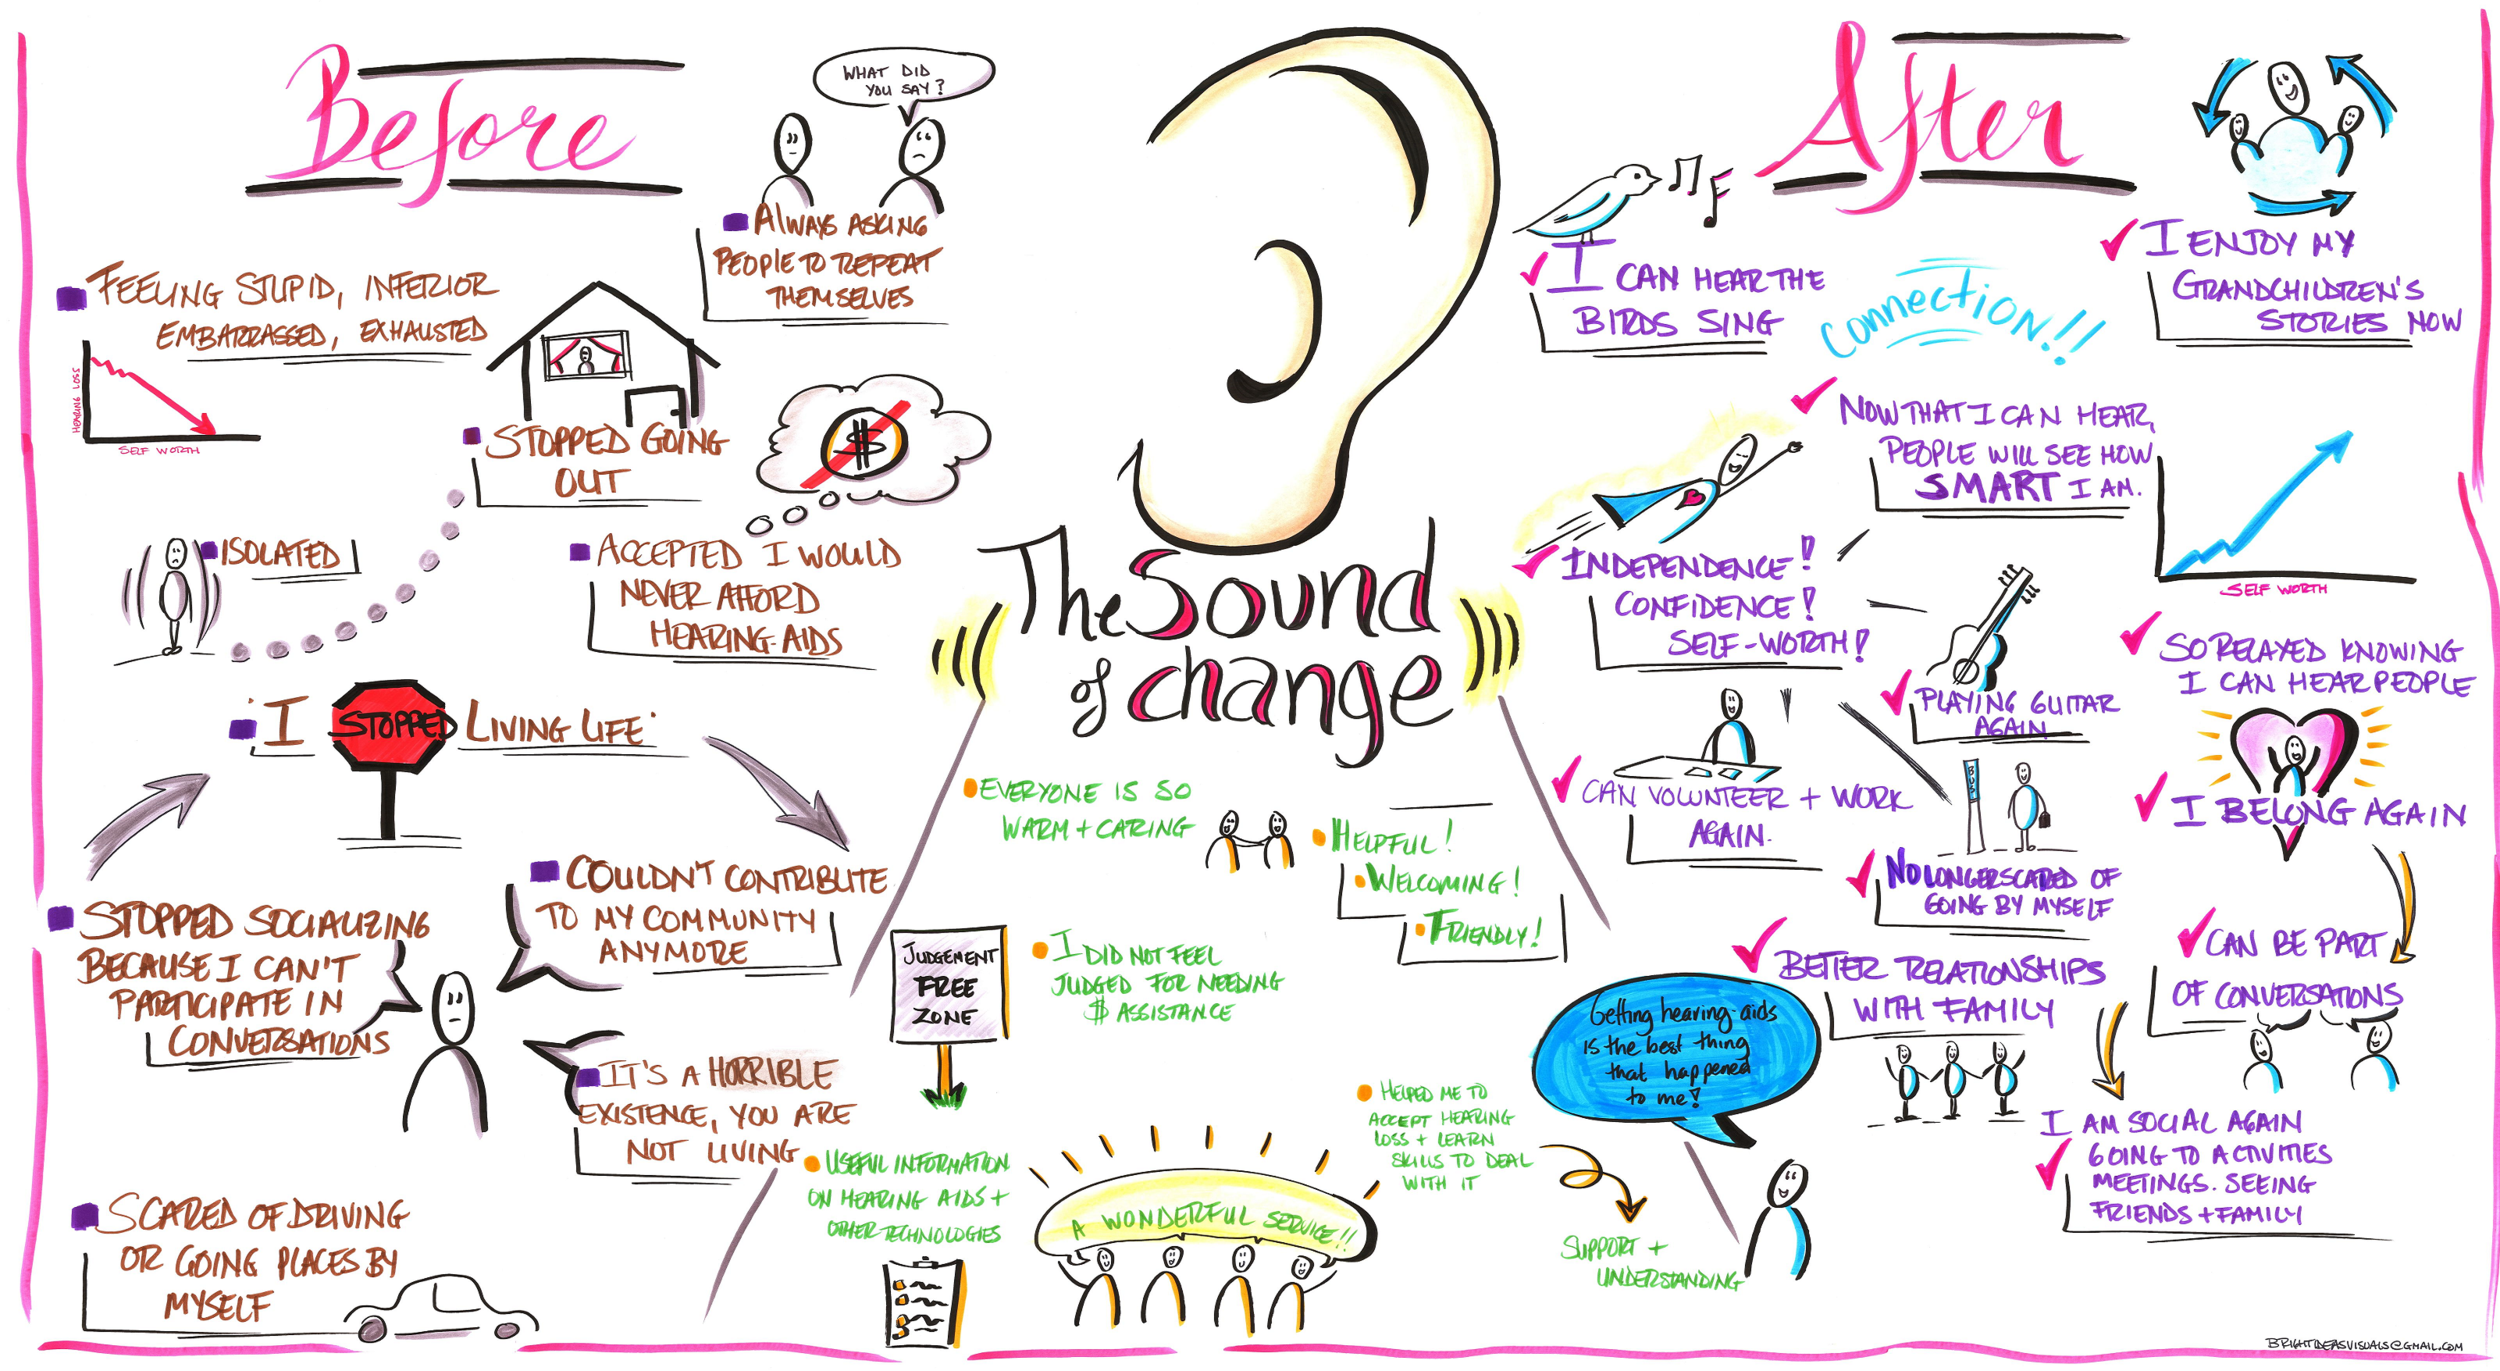 Before
WHAT DID
YOU SAY?
ALWAYS ASKING
PEOPLE TO REPEAT
THEMSELVES
FEELING STUPID, INFERIOR
EMBARRASSED, EXHAUSTED
HEARING LOSS
SELF WORTH
STOPPED GOING
OUT
ISOLATED
$
ACCEPTED I WOULD
NEVER AFFORD
HEARING-AIDS
"I STOPPED LIVING LIFE"
STOPPED SOCIALIZING
BECAUSE I CAN'T
PARTICIPATE IN
CONVERSATIONS
COULDN'T CONTRIBUTE
TO MY COMMUNITY
ANYMORE
IT'S A HORRIBLE
EXISTENCE, YOU ARE
NOT LIVING
SCARED OF DRIVING
OR GOING PLACES BY
MYSELF
The Sound
of change
EVERYONE IS SO
WARM + CARING
HELPFUL!
WELCOMING!
FRIENDLY!
JUDGEMENT
FREE
ZONE
I DID NOT FEEL
JUDGED FOR NEEDING
$ ASSISTANCE
USEFUL INFORMATION
ON HEARING AIDS +
OTHER TECHNOLOGIES
A WONDERFUL SERVICE!!
HELPED ME TO
ACCEPT HEARING
LOSS + LEARN
SKILLS TO DEAL
WITH IT
SUPPORT +
UNDERSTANDING
After
I CAN HEAR THE
BIRDS SING
Connection!!
I ENJOY MY
GRANDCHILDREN'S
STORIES NOW
NOW THAT I CAN HEAR,
PEOPLE WILL SEE HOW
SMART I AM.
SELF WORTH
INDEPENDENCE!
CONFIDENCE!
SELF-WORTH!
PLAYING GUITAR
AGAIN
SO RELAYED KNOWING
I CAN HEAR PEOPLE
CAN VOLUNTEER + WORK
AGAIN.
BUS
NO LONGER SCARED OF
GOING BY MYSELF
I BELONG AGAIN
BETTER RELATIONSHIPS
WITH FAMILY
CAN BE PART
OF CONVERSATIONS
Getting hearing-aids
is the best thing
that happened
to me!
I AM SOCIAL AGAIN
GOING TO ACTIVITIES
MEETINGS. SEEING
FRIENDS + FAMILY
BRIGHTIDEASVISUALS@GMAIL.COM